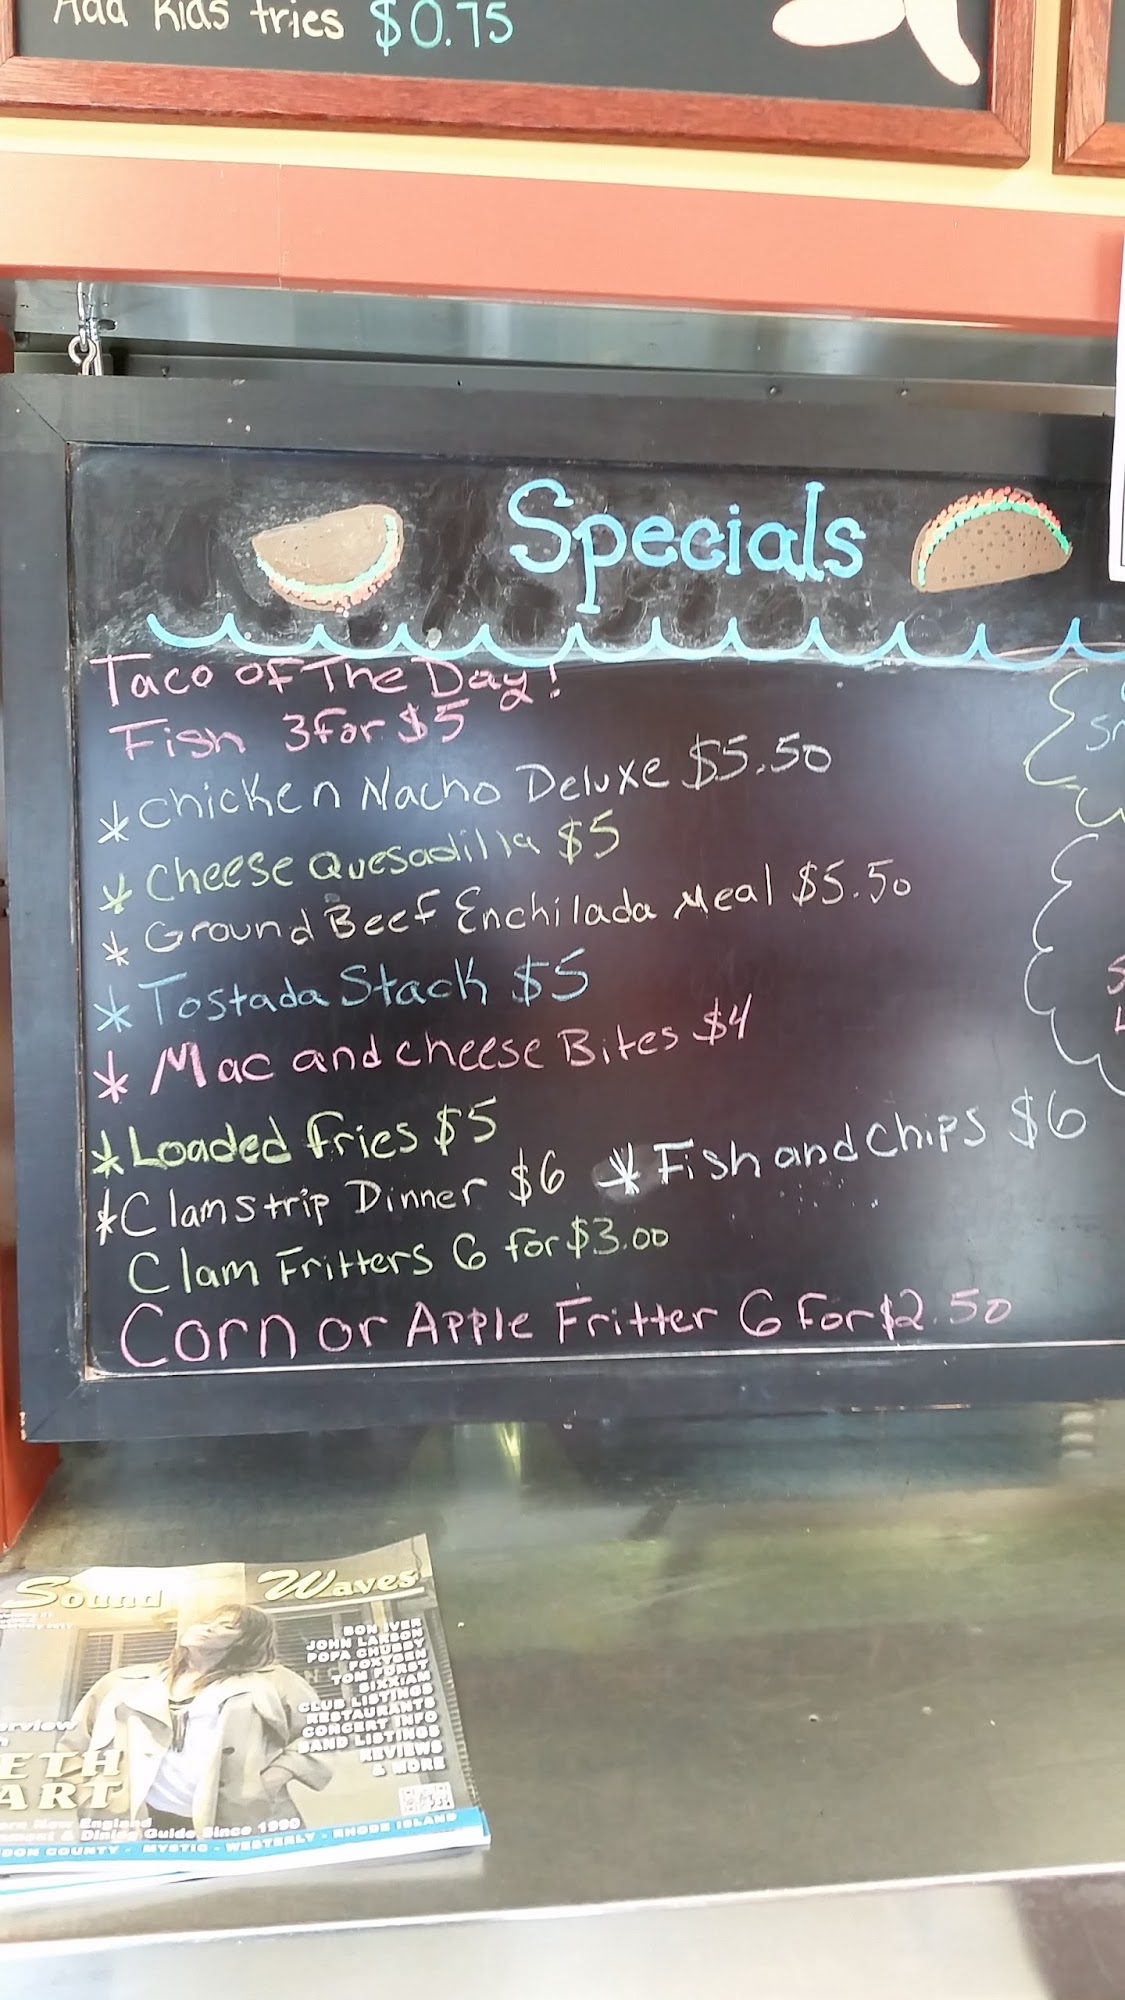 Add Kids fries $0.75
Specials
Taco of The Day!
Fish 3 for $5
* Chicken Nacho Deluxe $5.50
* Cheese Quesadilla $5
* Ground Beef Enchilada Meal $5.50
* Tostada Stack $5
* Mac and cheese Bites $4
* Loaded fries $5
* Clamstrip Dinner $6 * Fish and Chips $6
Clam Fritters 6 for $3.00
Corn or Apple Fritter 6 For $2.50
Sound Waves
BON IVER
JOHN LARSON
POPA CHUBBY
FOXYGEN
TOM PURST
SIXXIAM
CLUB LISTINGS
RESTAURANTS
CONCERT INFO
BAND LISTINGS
REVIEWS
& MORE
ETH
ART
New England
& Dining Guide Since 1990
COUNTY - MYSTIC - WESTERLY - RHODE ISLAND